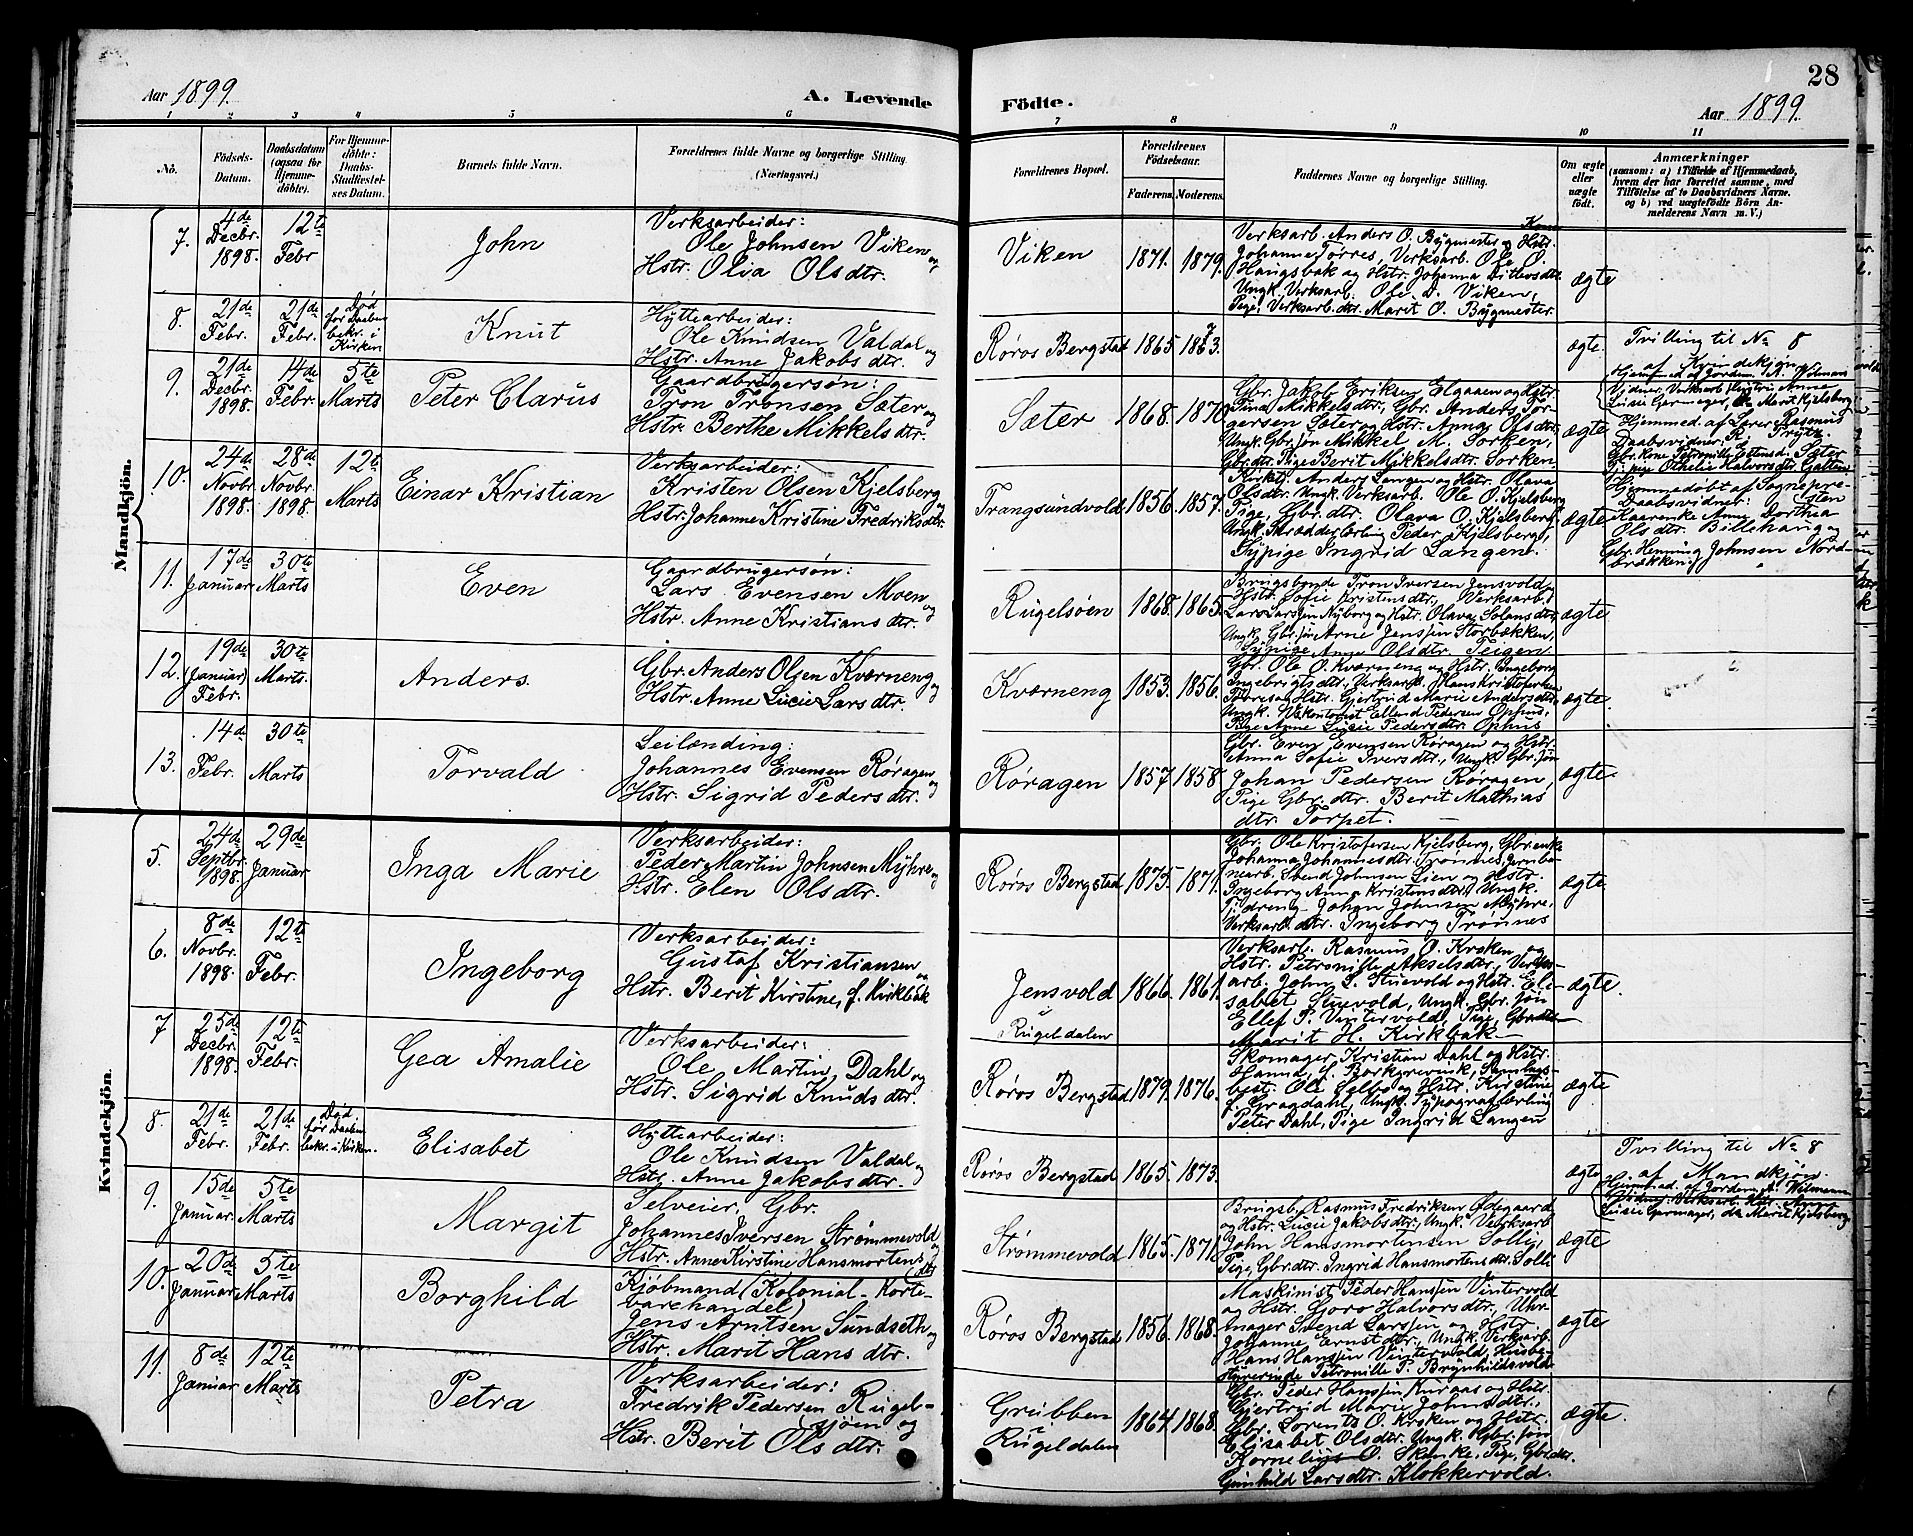 28
Aar 1899.
A. Levende
Födte.
Aar 1899.
1 2 3 4 5 6 7 8 9 10 11
No.
Födsels-
Datum.
Daabsdatum
(ogsaa for
Hjemme-
döbte).
For Hjemme-
döbte:
Daabs-
Stadfæstel-
ses Datum.
Barnets fulde Navn.
Forældrenes fulde Navne og borgerlige Stilling.
(Næringsvei.)
Forældrenes Bopæl.
Forældrenes
Födselsaar.
Faderens. Moderens.
Faddernes Navne og borgerlige Stilling.
Om ægte
eller
uægte
födt.
Anmærkninger
(saasom: a) i Tilfælde af Hjemmedaab,
hvem der har forrettet samme, med
Tilföielse af to Daabsvidners Navne.
og b) ved uægtefödte Börn An-
melderens Navn m. V.)
Mandkjön.
7.
4de
Decbr.
1898.
12te
Febr
John
Verksarbeider:
Ole Johnsen Viken og
Hstr. Olia Olsdtr.
Viken
1871. 1879.
Verksarb. Anders O. Bygmester og Hstr.
Johanne Torres, Verksarb. Ole O.
Haugsbak og Hstr. Johanna Ditlevsdtr.
Ungk. Verksarb. Ole D. Viken,
Pige, Verksarb. dtr. Marit O. Bygmester.
ægte
8.
21de
Febr.
21de
Febr.
Død
før Daaben
bekr. i
Kirken
Knut
Hyttearbeider:
Ole Knudsen Valdal og
Hstr. Anne Jakobsdtr.
Røros Bergstad
1865. 1873.
ægte.
Tvilling til No 8
af Kvindekjøn.
Hjemmed. af Jordem. A. Widmann
Vidner: Verksarb. Hustru Anne
Lusie Germager, do Marit Kjelsberg
9.
21de
Decbr.
1898.
14de
Febr.
5te
Marts
Peter Clarus
Gaardbrugersøn:
Tron Tronsen Sæter og
Hstr. Berthe Mikkelsdtr.
Sæter
1868. 1870.
Gbr. Jakob Eriksen Elgaaen og Hstr.
Tina Mikkelsdtr., Gbr. Anders Tor-
gersen Sæter og Hstr. Anna Olsdtr.
Ungk. Gbr. søn Mikkel M. Sorken,
Gbr. dtr. Pige Berit Mikkelsdtr. Sorken.
ægte
Hjemmed. af Lærer Rasmus
Daabsvidner: P. Trytz.
10.
24de
Novbr.
1898.
28de
Novbr.
1898.
12te
Marts
Einar Kristian
Verksarbeider:
Kristen Olsen Kjelsberg og
Hstr. Johanne Kristine Fredriksdtr.
Trangsundvold
1856. 1857.
Kirketj. Anders Langen og Hstr. Olava
Olsdtr. Ungk. Verksarb. Ole O. Kjelsberg
Pige, Gbr. dtr. Olava O. Kjelsberg
Ungk. Skrædderlærling Peder Kjelsberg,
Sypige Ingrid Langen.
ægte
Hjemmedøbt af Sognepre-
Daabsvidner: sten
Kaarenke Anne Dorthea
Olsdtr. Billehaug og
Gbr. Henning Johnsen Nord-
brækken.
11.
17de
Januar
30te
Marts
Even
Gaardbrugersøn:
Lars Evensen Moen og
Hstr. Anne Kristiansdtr.
Rugelsøen
1868. 1865.
Brugsbonde Tron Iversen Jensvold
Hstr. Sofie Kristensdtr., Verksarb.
Lars Larssen Nyborg og Hstr. Olava
Ungk. Gbr. søn Arne Jenssen Storbækken,
Sypige Anne Olsdtr. Teigen
ægte
12.
19de
(Januar)
Febr.
30te
Marts.
Anders.
Gbr. Anders Olsen Kværneng og
Hstr. Anne Lucie Larsdtr.
Kværneng
1853. 1856.
Gbr. Ole O. Kværneng og Hstr. Ingeborg
Ingebrigtsdtr., Verksarb. Hans Kristofersen
og Hstr. Gjertrud Marie Andersdtr.
Ungk. Ellend Pedersen Ophus,
Pige Anne Lucie Pedersdtr. Ophus
ægte.
13.
14de
Febr.
30te
Marts
Torvald
Leilænding:
Johannes Evensen Røragen og
Hstr. Sigrid Pedersdtr.
Røragen
1857. 1858.
Gbr. Even Evensen Røragen og Hstr.
Anna Sofie Iversdtr., Ungk. Gbr. søn
Johan Pedersen Røragen,
Pige Gbr. dtr. Berit Mathias
dtr. Torpet.
ægte
Kvindekjön.
5.
24de
Septbr.
1898.
29de
Januar
Inga Marie
Verksarbeider:
Peder Martin Johnsen Myhre og
Hstr. Elen Olsdtr.
Røros Bergstad
1875. 1871.
Gbr. Ole Kristofersen Kjelsberg, Gbr. enke
Johanna Johannesdtr. Trønnes, Jernba-
nearb. Svend Johnsen Lien og Hstr.
Ingeborg Anna Kristensdtr., Ungk.
Tj. dreng Johan Johnsen Myhre,
Verksarb. dtr. Ingeborg Trønnes
ægte
6.
8de
Novbr.
1898.
12te
Febr.
Ingeborg
Verksarbeider:
Gustaf Kristiansen og
Hstr. Berit Kirstine, f. Kirkbak
Jensvold
i Rugeldalen
1866. 1861.
Verksarb. Rasmus O. Kroken og
Hstr. Petronille Akselsdtr., Verks-
arb. John L. Stuevold og Hstr. Eli-
sabet Stuevold, Ungk. Gbr. søn
Ellef P. Vintervold, Pige, Gbr. dtr.
Marit H. Kirkbak
ægte.
7
25de
Decbr.
1898.
12te
Febr.
Gea Amalie
Verksarbeider:
Ole Martin Dahl og
Hstr. Sigrid Knudsdtr.
Røros Bergstad
1879. 1876.
Skomager Kristian Dahl og Hstr.
Hanna, f. Borkgrevink,
best. Ole Selbo og Hstr. Kirstine
f. Gragdahl, Ungk. Typograflærling
Peter Dahl, Pige Ingrid Langen
ægte
8.
21de
Febr.
21de
Febr.
Død
før Daaben
bekr. i Kirken.
Elisabet
Hyttearbeider:
Ole Knudsen Valdal og
Hstr. Anne Jakobsdtr.
Røros Bergstad
1865. 1873.
ægte
Tvilling til No 8
af Mandkjøn.
Hjemmed. af Jordem. A. Widmann
Lusie Germager, do Marit Kjelsberg
9.
15de
Januar.
5te
Marts
Margit
Selveier, Gbr.
Johannes Iversen Strømmevold og
Hstr. Anne Kirstine Hansmortens
dtr
Strømmevold
1865. 1871.
Brugsb. Rasmus Fredriksen Ødegaard
og Hstr. Lucie Jakobsdtr., Ungk. Verksarb
John Hansmortensen Solli,
Pige, Gbr. dtr. Ingrid Hansmortensdtr. Solli
ægte
10.
20de
Januar
5te
Marts
Borghild
Kjøbmand (Kolonial-Korte-
varehandel)
Jens Arntsen Sundseth og
Hstr. Marit Hansdtr.
Røros Bergstad
1856. 1868.
Maskinist Peder Hanssen Vintervold
og Hstr. Gjoro Halvorsdtr., Uhr-
mager Svend Larssen og Hstr.
Johanne Ernstdtr., Ungk. Verksarb.
Hans Hanssen Vintervold, Husbe-
styrerinde Petronille P. Brynhildsvold
ægte
11.
8de
Januar
12te
Marts
Petra
Verksarbeider:
Fredrik Pedersen Rugel-
sjøen og
Hstr. Berit Olsdtr.
Grubben
i Rugeldalen
1864. 1868.
Gbr. Peder Hanssen Kuraas og Hstr.
Gjertrud Marie Johnsdtr.,
Gbr. Lorents O. Kroken og Hstr.
Elisabet Olsdtr. Ungk. Gbr. søn
Kornelius O. Skanke, Pige, Gbr. dtr.
Gunhild Larsdtr. Klokkervold.
ægte.